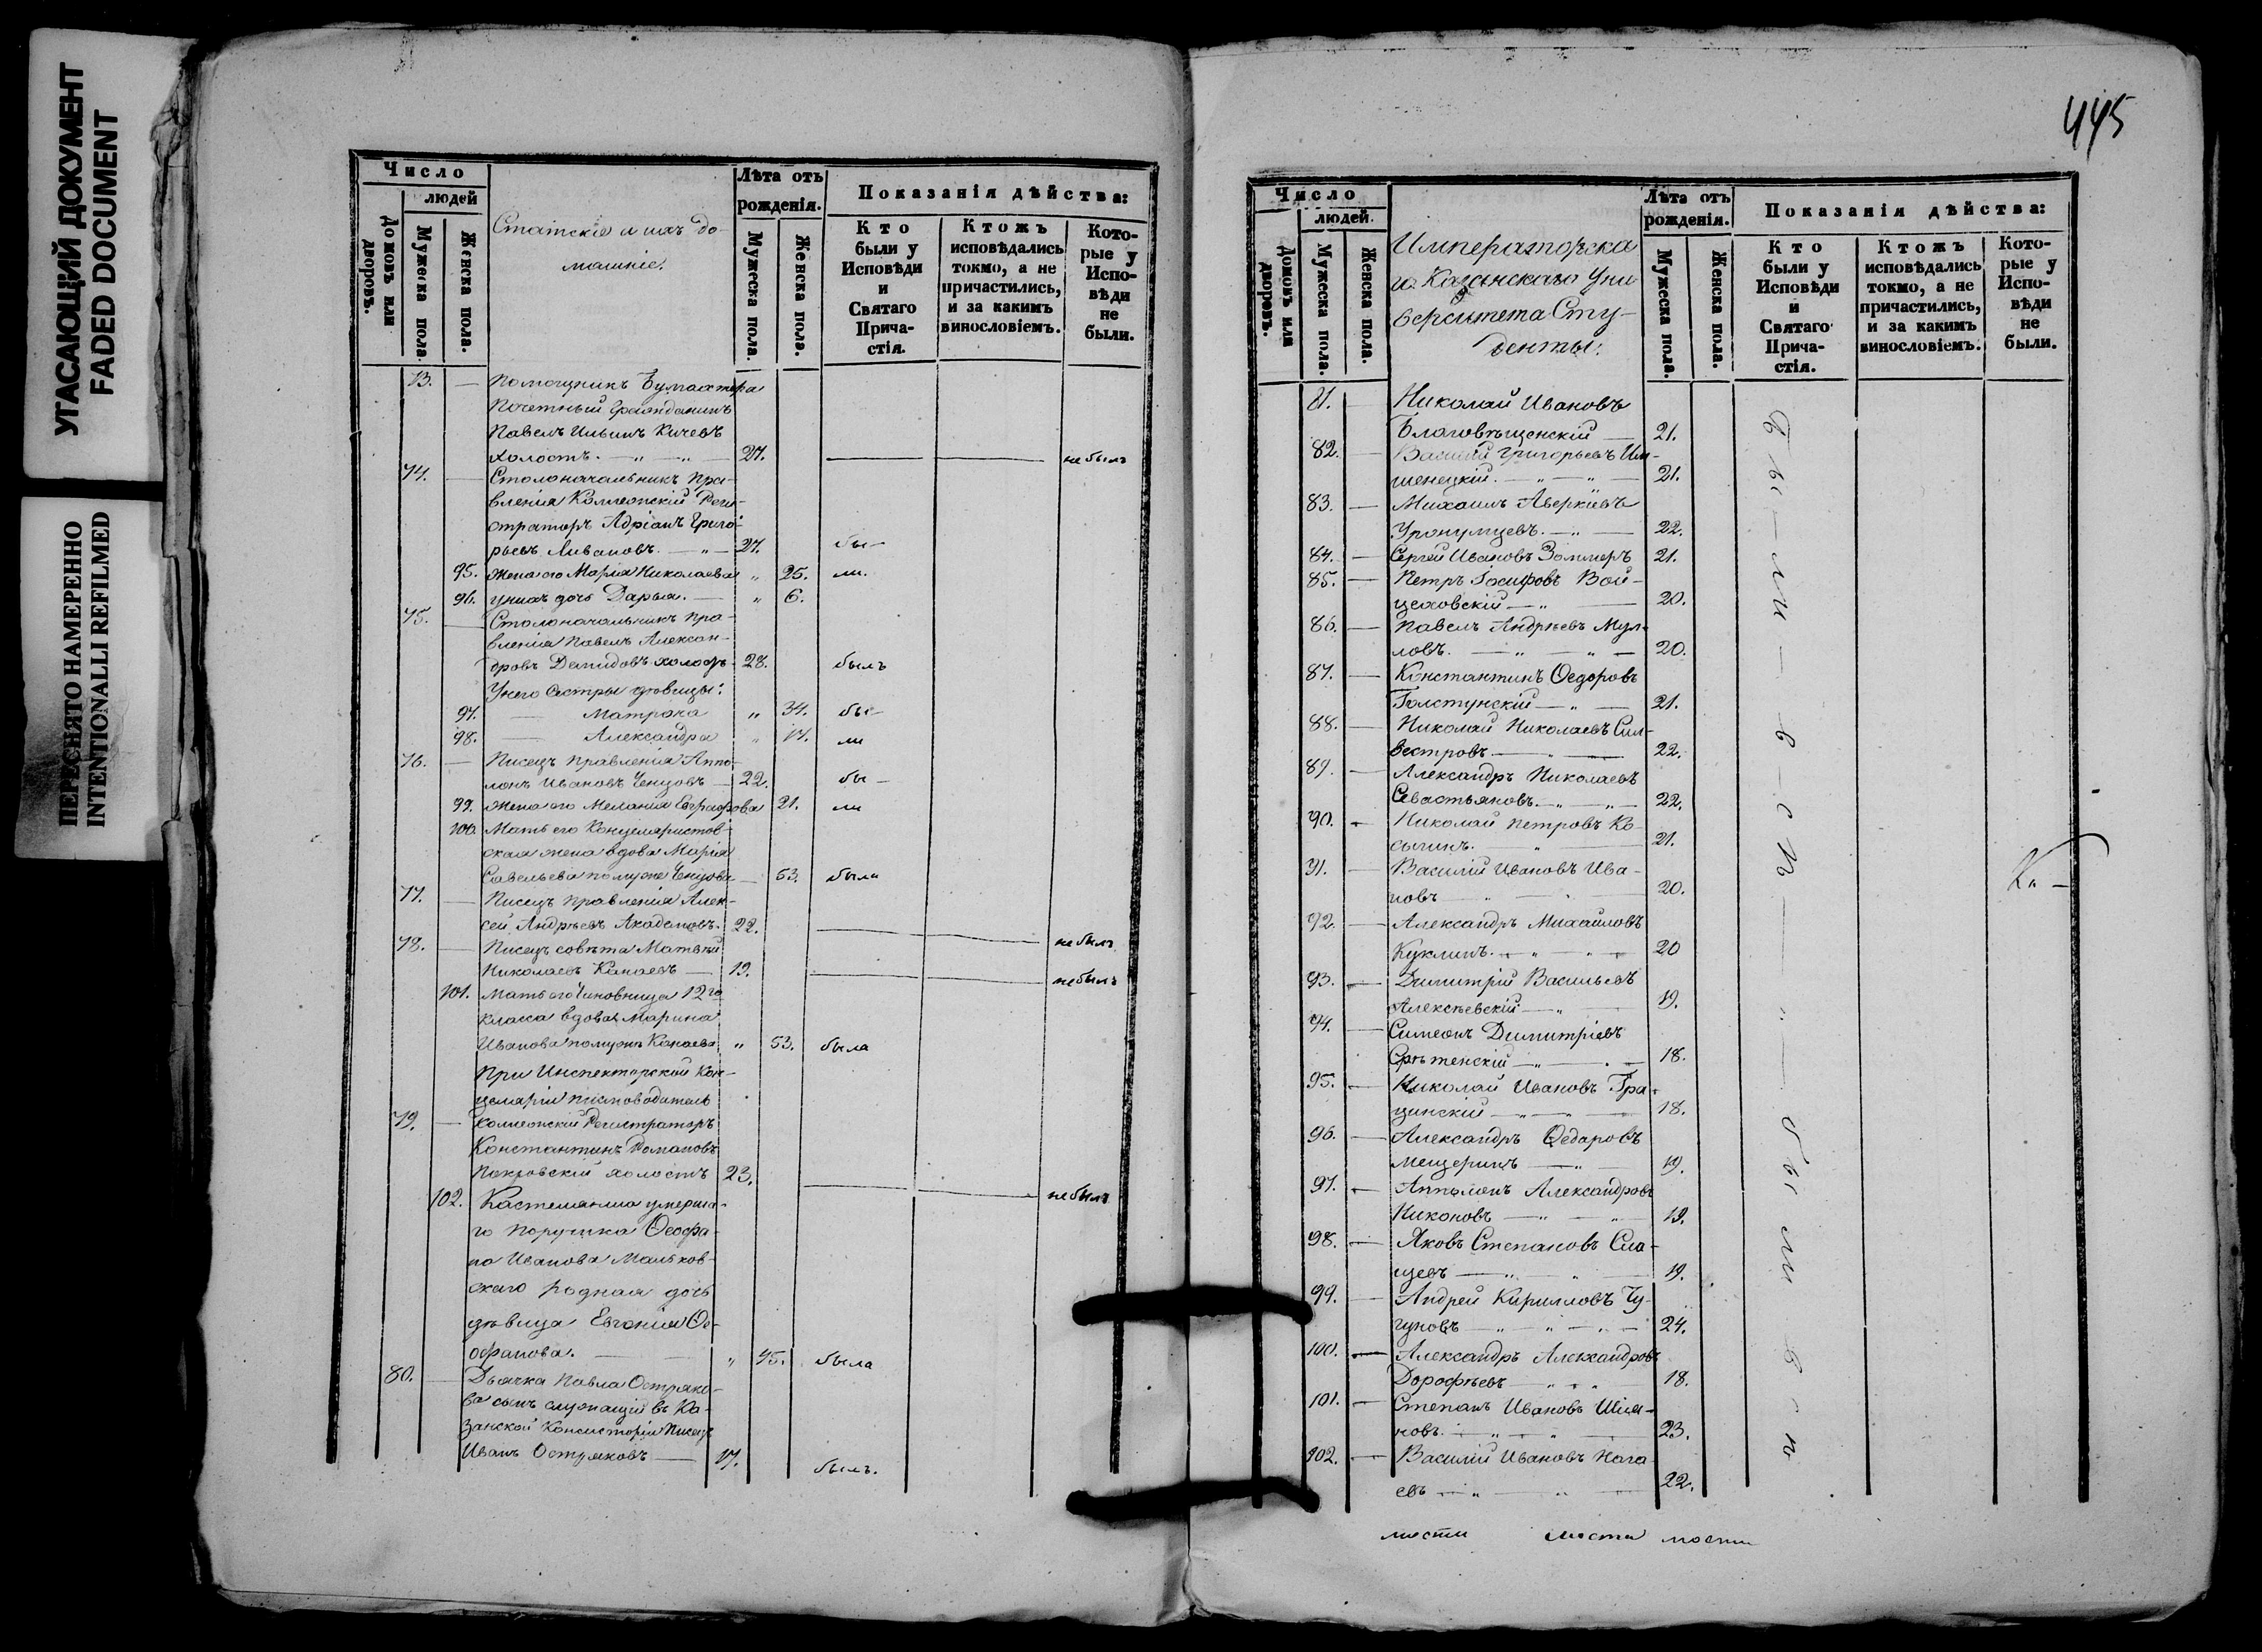 УГАСАЮЩИЙ ДОКУМЕНТ
FADED DOCUMENT
ПЕРЕСНЯТО НАМЕРЕННО
INTENTIONALLI REFILMED
Число
людей
Домовъ или дворовъ.
Мужеска пола.
Женска пола.
Статскіе и ихъ до-
машніе.
Лѣта отъ
рожденія.
Мужеска пола.
Женска пола.
Показанія дѣйства:
Кто
были у
Исповѣди
и
Святаго
Прича-
стія.
Ктожъ
исповѣдались
токмо, а не
причастились,
и за какимъ
винословіемъ.
Кото-
рые у
Испо-
вѣди
не
были.
73. — Помощникъ Бухгалтера
Почетный Гражданинъ
Павелъ Ильинъ Кичевъ
холостъ. — „ — „ — 27. не былъ
74. — Столоначальникъ Пра-
вленія Коллежскій Реги-
страторъ Адріанъ Григо-
рьевъ Ливановъ. — „ — 27. бы-
95. Жена его Марія Николаева „ 25. ли.
96. у нихъ дочь Дарья. — „ 6.
75. — Столоначальникъ Пра-
вленія Павелъ Алексан-
дровъ Демидовъ холостъ 28. былъ
У него Сестры дѣвицы:
97. — Матрона „ 34. бы-
98. — Александра „ 17. ли
76. — Писецъ Правленія Аппо-
лонъ Ивановъ Ченцовъ — 22. бы-
99. Жена его Меланія Евграфова 21. ли
100. Мать его Канцеляристов-
ская жена вдова Марія
Савельева по мужѣ Ченцова — 53. была
77. — Писецъ Правленія Алек-
сей Андреевъ Акадановъ. 22. не былъ
78. — Писецъ совѣта Матвѣй
Николаевъ Канаевъ — 19. не былъ
101. Мать его Чиновница 12го
класса вдова Марина
Иванова по мужѣ Канаева „ 53. была
При Инспекторской Кан-
целяріи писмоводитель
79. — Коллежскій Регистраторъ
Константинъ Романовъ
Покровскій холостъ 23. не былъ
102. Кастелянша умерша-
го Поручика Ѳеофа-
на Иванова Мальков-
скаго родная дочь
дѣвица Евгенія Ѳе-
офанова. — „ 45. была
80. — Дьячка Павла Острико-
ва сынъ служащій въ Ка-
занской Консисторіи Писецъ
Иванъ Остряковъ — 17. былъ.
445
Число
людей.
Домовъ или дворовъ.
Мужеска пола.
Женска пола.
Императорска
го Казанскаго Уни
верситета Сту-
денты:
Лѣта отъ
рожденія.
Мужеска пола.
Женска пола.
Показанія дѣйства:
Кто
были у
Исповѣди
и
Святаго
Прича-
стія.
Ктожъ
исповѣдались
токмо, а не
причастились,
и за какимъ
винословіемъ.
Кото-
рые у
Испо-
вѣди
не
были.
81. — Николай Ивановъ
Благовѣщенскій — 21.
82. — Василій Григорьевъ Им-
шенецкій. — „ — „ — 21.
83. — Михаилъ Аверкіевъ
Уронумцевъ. — „ — 22.
84. — Сергей Ивановъ Золлеръ 21.
85. — Петръ Іосифовъ Вой-
цеховскій — „ — 20.
86. — Павелъ Андреевъ Мул-
ловъ. — „ — „ — 20.
87. — Константинъ Ѳедоровъ
Голстунскій — „ — 21.
88. — Николай Николаевъ Сил-
вестровъ — „ — 22.
89. — Александръ Николаевъ
Севастьяновъ. — „ — „ — 22.
90. — Николай Петровъ Ко-
сыгинъ. — „ — 21.
91. — Василій Ивановъ Ива-
новъ „ — 20.
92. — Александръ Михайловъ
Куклинъ. — „ — „ — 20
93. — Димитрій Васильевъ
Алексѣевскій — „ — 19.
94. — Симеонъ Димитріевъ
Срѣтенскій — „ — 18.
95. — Николай Ивановъ Гра-
цинскій — „ — „ — 18.
96. — Александръ Ѳедоровъ
Мещеринъ — „ — 19.
97. — Апполонъ Александровъ
Никоновъ — „ — „ 19.
98. — Яковъ Степановъ Сла-
щевъ — „ — „ — 19.
99. — Андрей Кирилловъ Чу-
гуновъ — „ — „ — 24.
100. — Александръ Александровъ
Дорофѣевъ — „ — „ 18.
101. — Степанъ Ивановъ Шиш-
ковъ. — „ — „ — 23.
102. — Василій Ивановъ Нага-
евъ — „ — „ — 22.